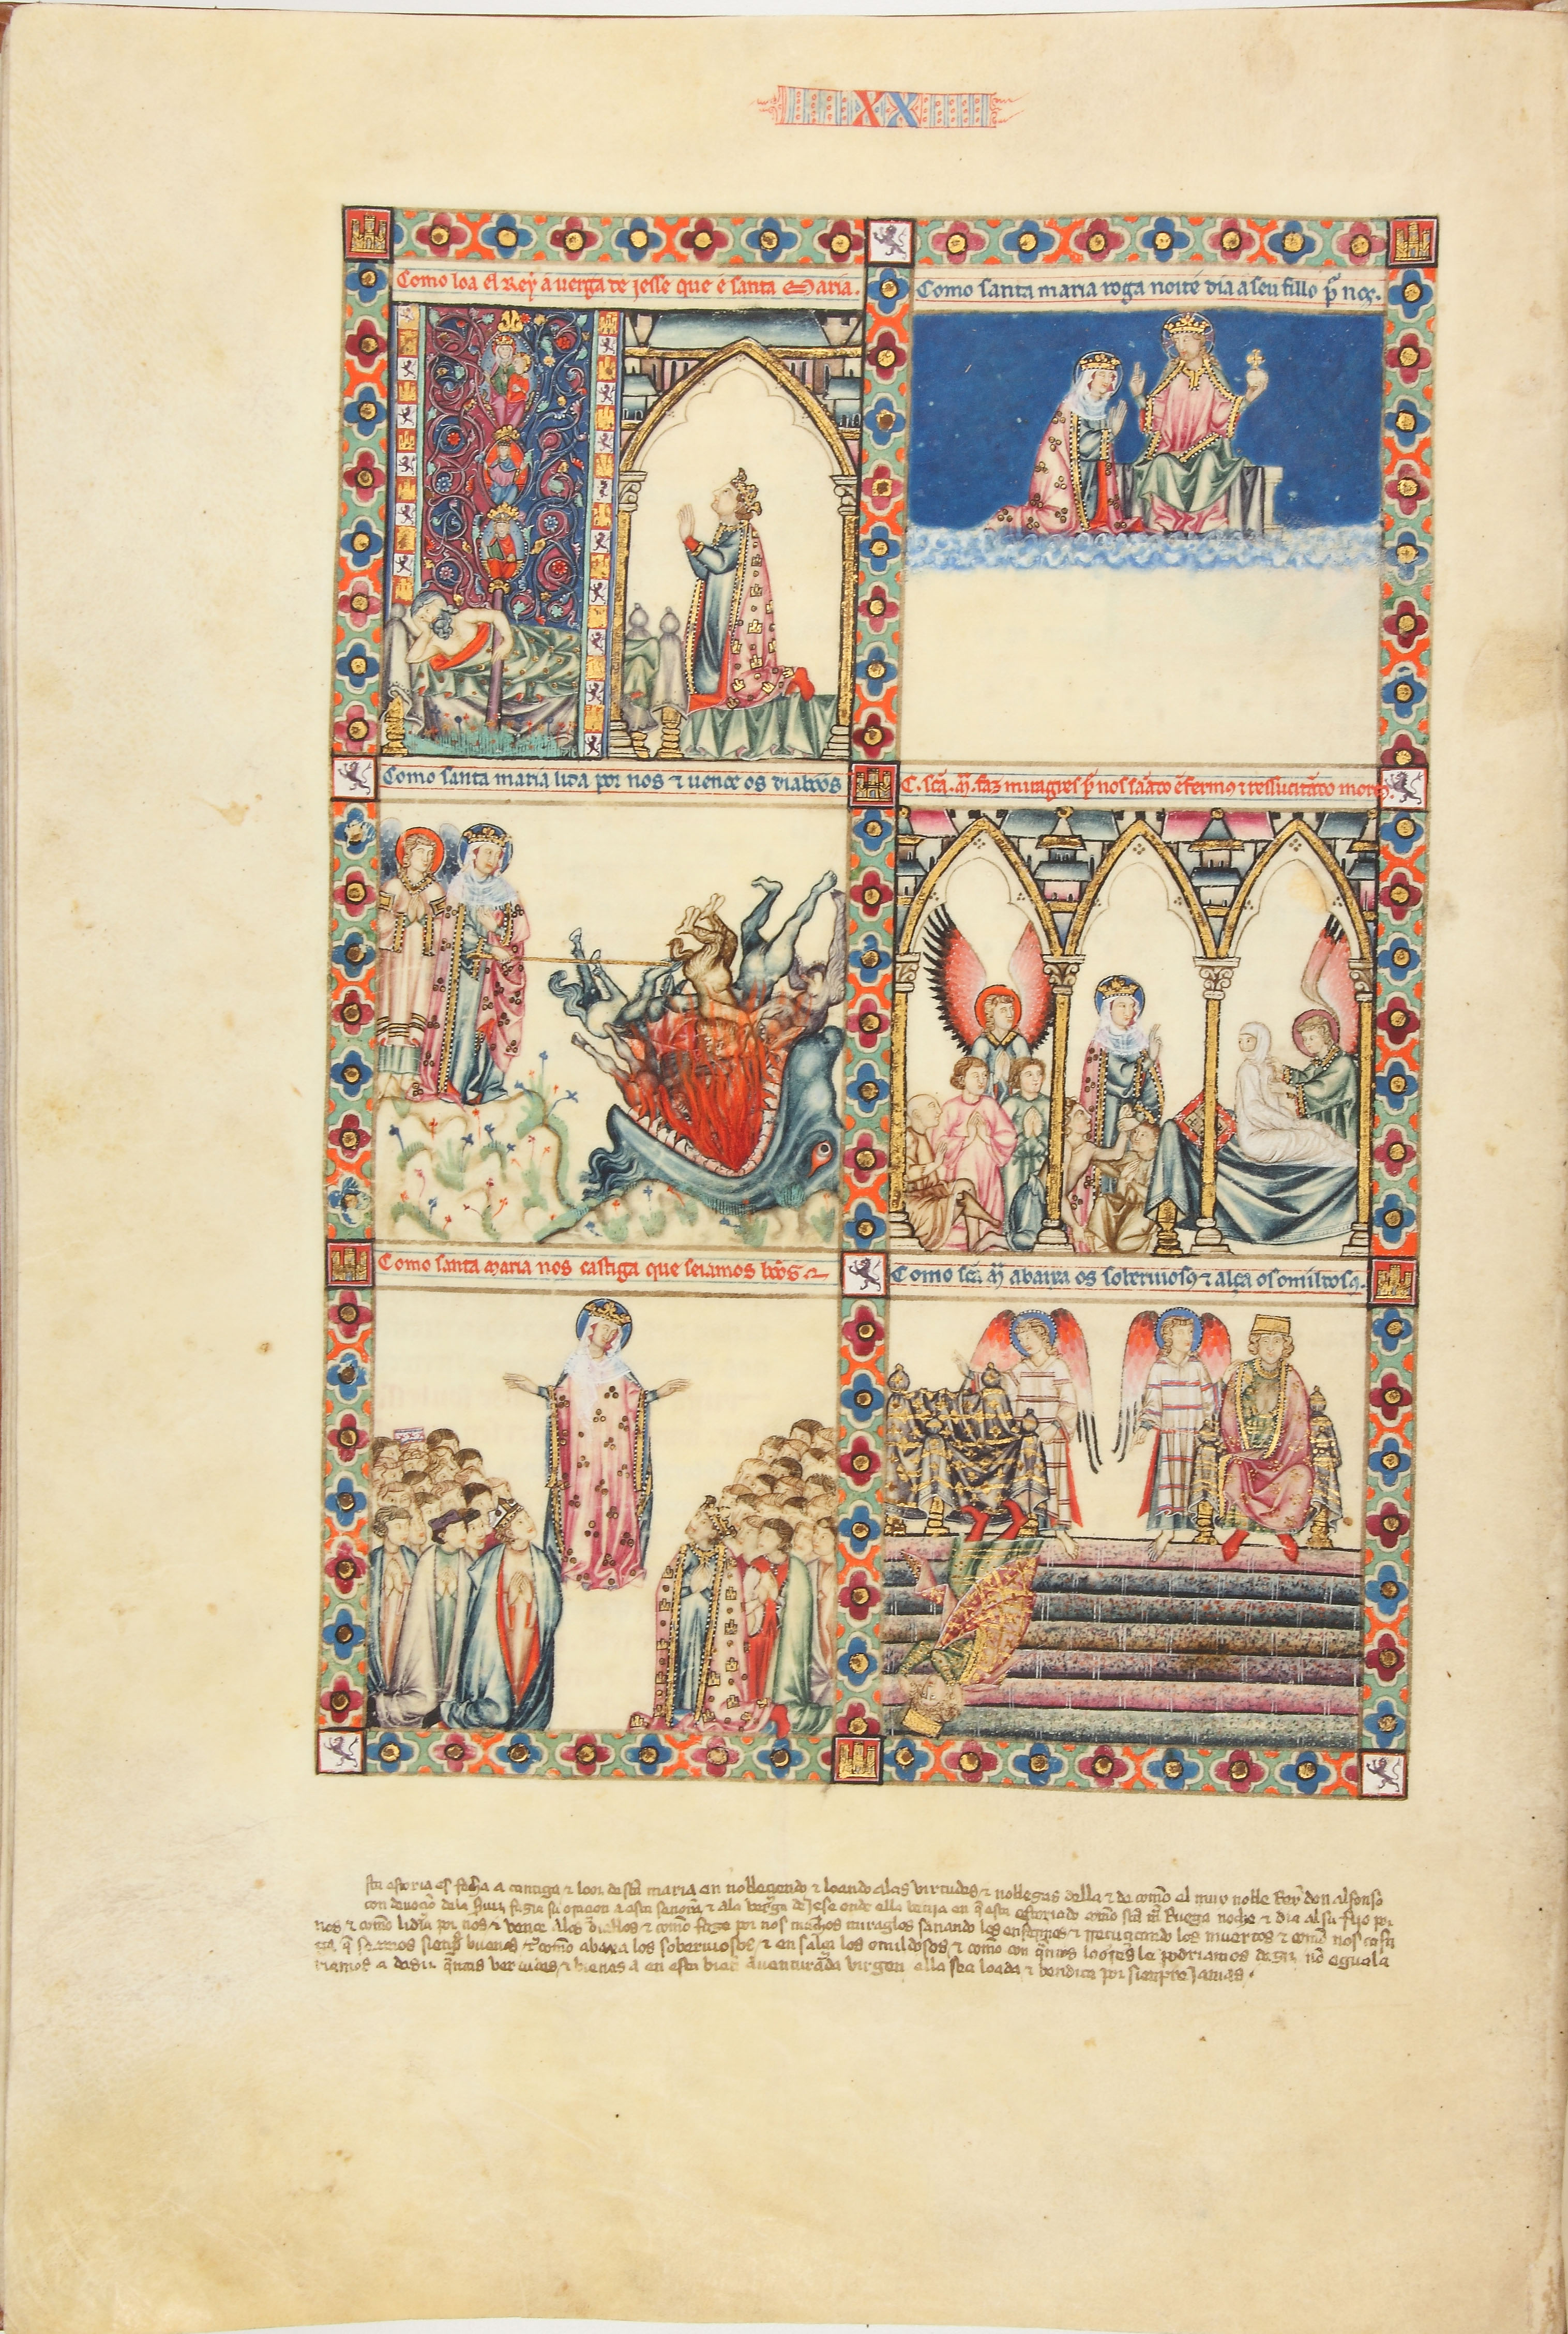 XX
Como loa el Rey a uerga de iesse que é santa Maria.
Como santa maria roga noite dia a seu fillo p̃ nos.
Como santa maria lida por nos ⁊ uence os diabóós
C. sc̃a. m̃. faz miragres p̃ nos sããdo ẽfermos ⁊ ressucitãdo mortos.
Como santa maria nos castiga que seiamos bõos
Como sc̃a m̃ abaixa os soberuiosos ⁊ alça os omildosos.
sta estoria es fecha a cantiga ⁊ loor de sc̃a maria en nobleçiendo ⁊ loando a las virtudes ⁊ noblezas della ⁊ de como el muy noble Rey don alfonso
con deuoçiõ fazia su oraçion a esta señora ⁊ a la verga de Jese onde ella venia en q̃ esta estoriado como sc̃a m̃ Ruega noche ⁊ dia al su fijo por
nos ⁊ como lidia por nos ⁊ vence a los diablos ⁊ como faze por nos muchos miraglos sanando los enfermos ⁊ Resucitando los muertos ⁊ como nos casti
ga q̃ seamos sienp̃ buenos ⁊ como abaxa los soberuiosos ⁊ ensalça los omildosos ⁊ como con q̃ntos loores le podriamos dezir nõ eguala
riamos a dezir q̃ntas vertudes ⁊ bienes a en esta bien auenturada virgen ella sea loada ⁊ bendicta por sienpre Jamas.